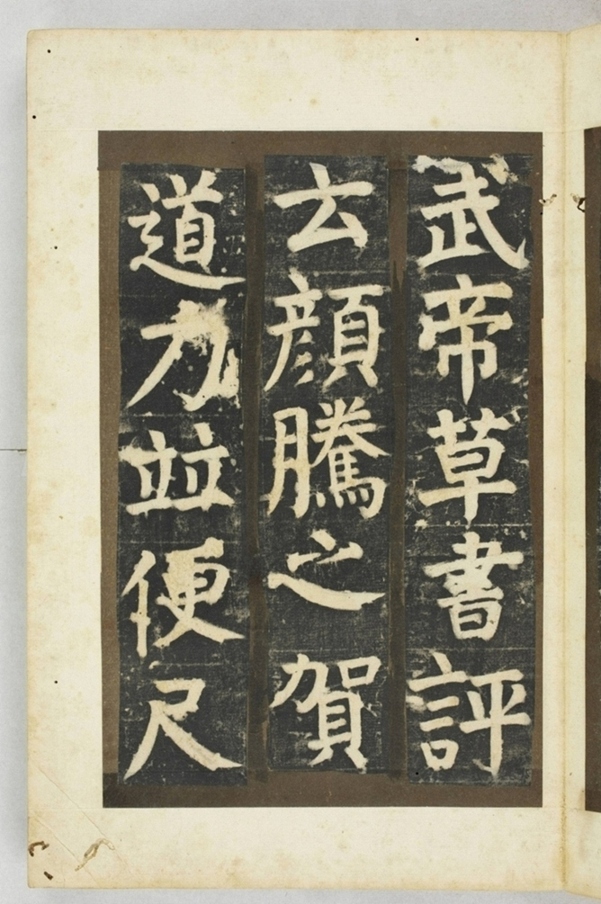 武帝草書評
云顔騰之賀
道力並便尺